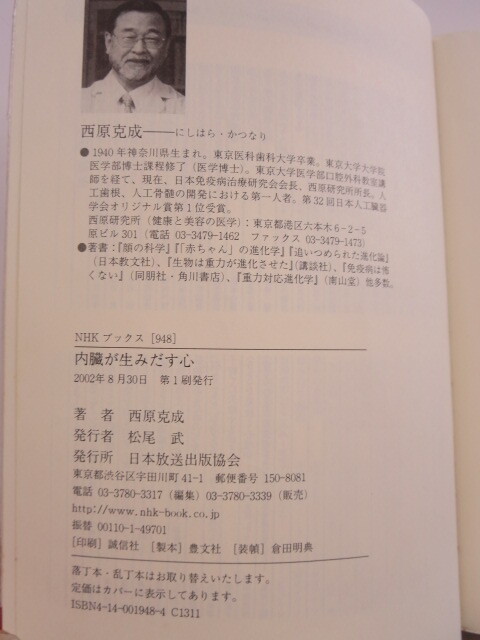 西原克成――にしはら・かつなり
●1940年神奈川県生まれ。東京医科歯科大学卒業。東京大学大学院
医学部博士課程修了(医学博士)。東京大学医学部口腔外科教室講
師を経て、現在、日本免疫病治療研究会会長、西原研究所所長。人
工歯根、人工骨髄の開発における第一人者。第32回日本人工臓器
学会オリジナル賞第1位受賞。
西原研究所(健康と美容の医学):東京都港区六本木6-2-5
原ビル301(電話03-3479-1462 ファックス03-3479-1473)
●著書:『顔の科学』『「赤ちゃん」の進化学』『追いつめられた進化論』
(日本教文社)、『生物は重力が進化させた』(講談社)、『免疫病は怖
くない』(同朋社・角川書店)、『重力対応進化学』(南山堂)他多数。
NHKブックス[948]
内臓が生みだす心
2002年8月30日 第1刷発行
著 者 西原克成
発行者 松尾 武
発行所 日本放送出版協会
東京都渋谷区宇田川町41-1 郵便番号 150-8081
電話 03-3780-3317(編集)03-3780-3339(販売)
http://www.nhk-book.co.jp
振替 00110-1-49701
[印刷]誠信社 [製本]豊文社 [装幀]倉田明典
落丁本・乱丁本はお取り替えいたします。
定価はカバーに表示してあります。
ISBN4-14-001948-4 C1311